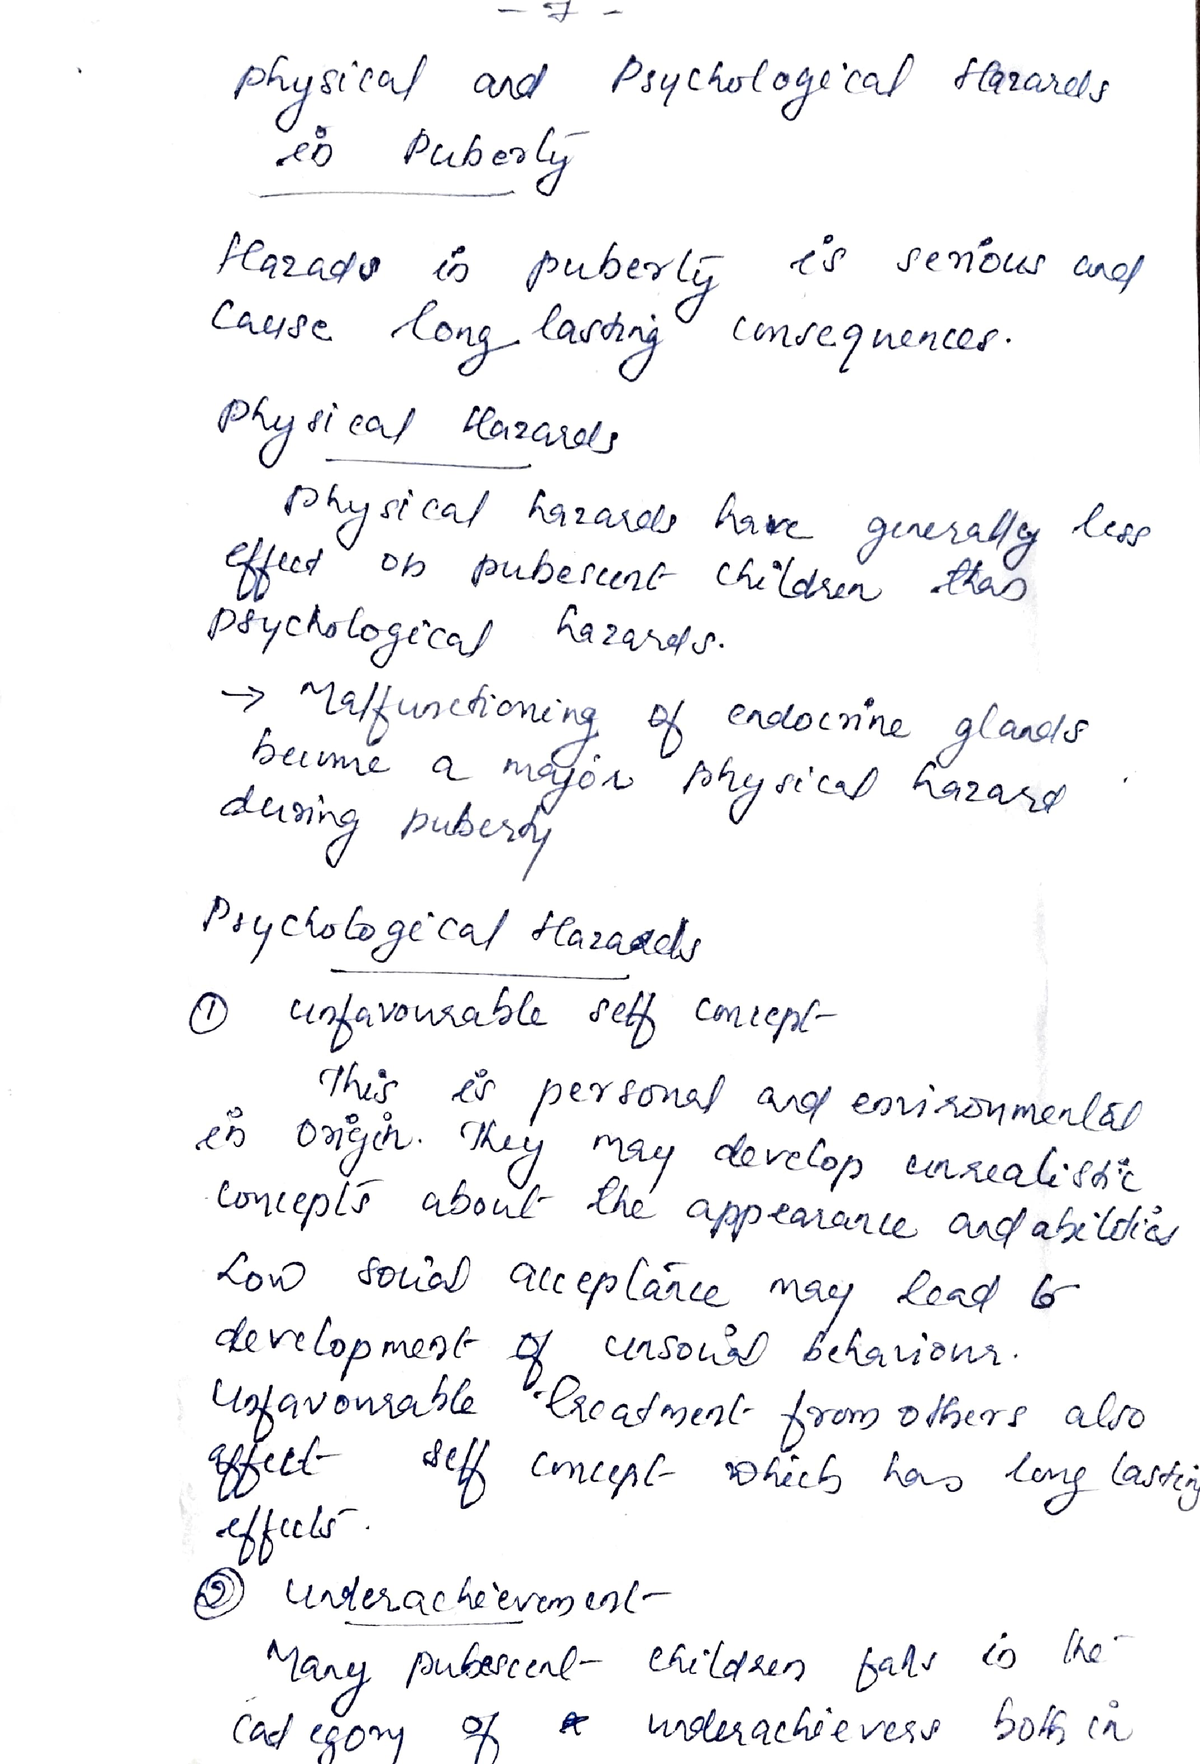 - 7 -
Physical and Psychological Hazards
in Puberty
Hazads in puberty is serious and
Cause long lasting consequences.
Physical Hazards
Physical hazards have generally less
effect on pubescent children than
Psychological hazards.
→ Malfunctioning of endocrine glands
become a major physical hazard
during puberty
Psychological Hazards
① Unfavourable self concept
This is personal and environmental
in origin. They may develop unrealistic
concepts about the appearance and abilities
Low social acceptance may lead to
development of unsocial behaviour.
Unfavourable treatment from others also
affect self concept which has long lasting
effects.
② Underachievement
Many pubescent children falls in the
category of underachievers both in